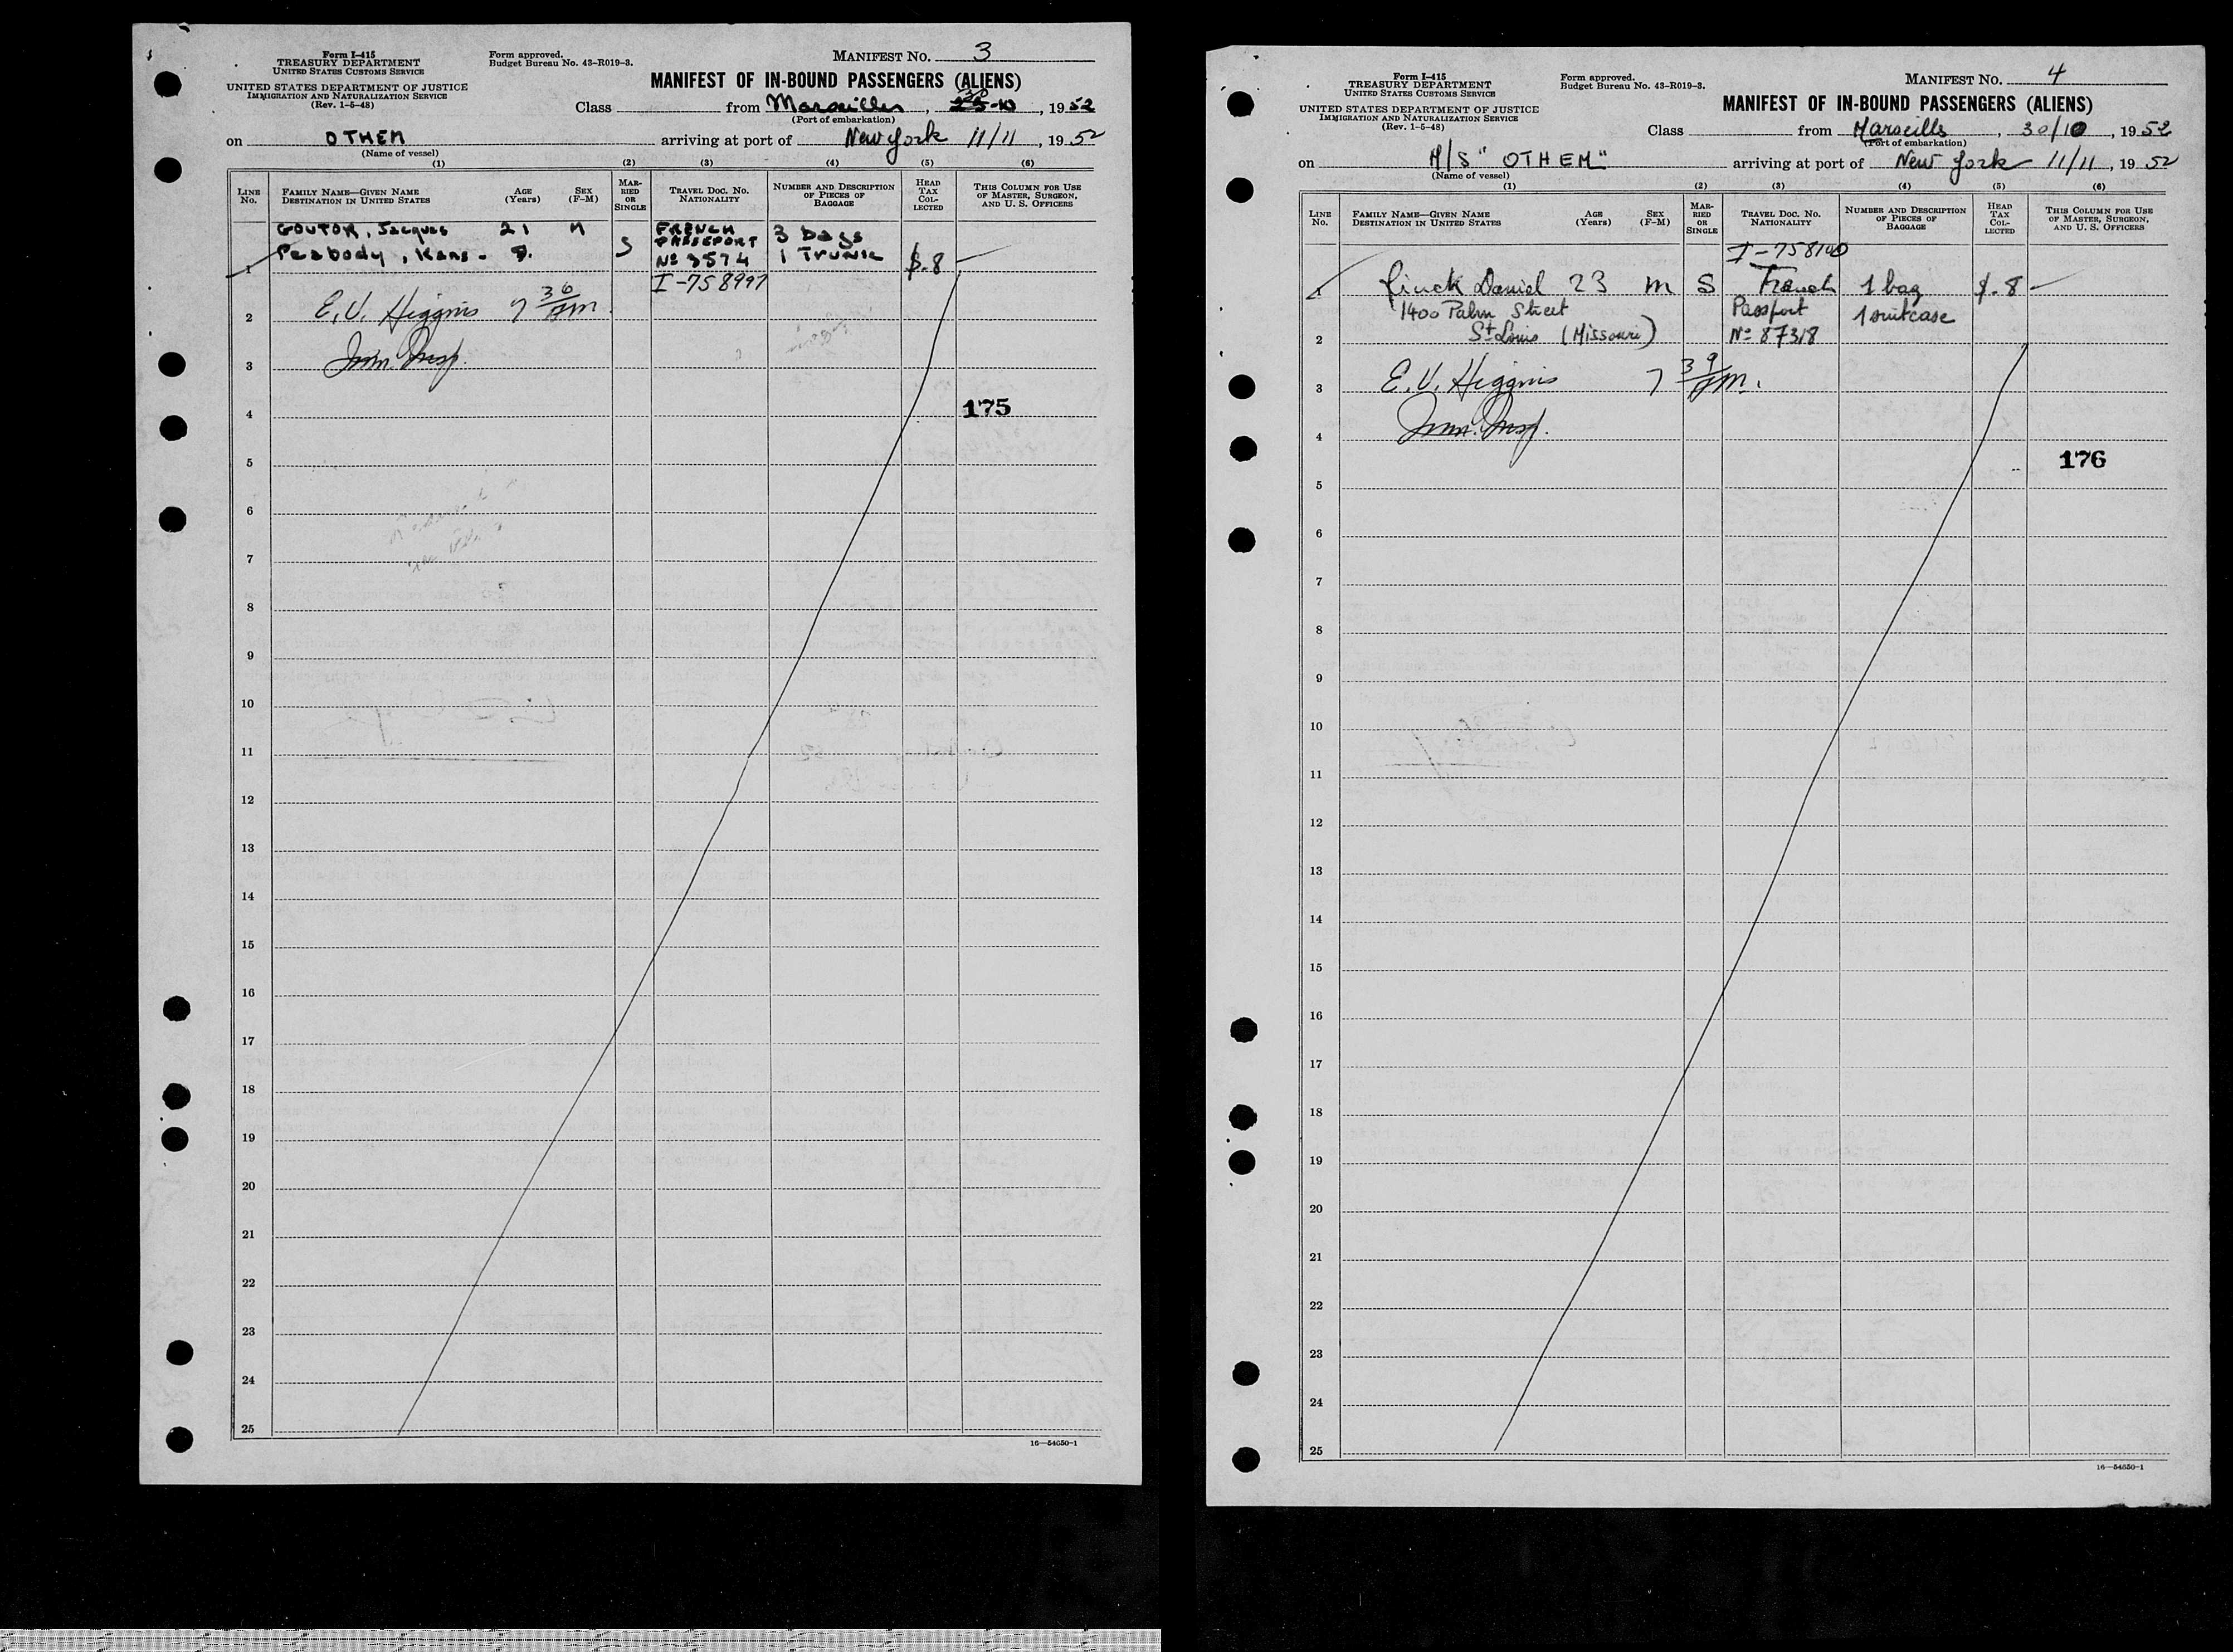 Form I-415
TREASURY DEPARTMENT
UNITED STATES CUSTOMS SERVICE
UNITED STATES DEPARTMENT OF JUSTICE
IMMIGRATION AND NATURALIZATION SERVICE
(Rev. 1-5-48)
Form approved.
Budget Bureau No. 43-R019-3.
MANIFEST NO. 3
MANIFEST OF IN-BOUND PASSENGERS (ALIENS)
Class from Marseilles, 30 25-10, 1952
(Port of embarkation)
on OTHEM arriving at port of New York 11/11, 1952
(Name of vessel)
(1) (2) (3) (4) (5) (6)
LINE No. FAMILY NAME—GIVEN NAME DESTINATION IN UNITED STATES AGE (Years) SEX (F-M) MARRIED OR SINGLE TRAVEL DOC. NO. NATIONALITY NUMBER AND DESCRIPTION OF PIECES OF BAGGAGE HEAD TAX COLLECTED THIS COLUMN FOR USE OF MASTER, SURGEON, AND U. S. OFFICERS
GOUTOR, Jacques 21 M FRENCH 3 bags
Peabody, Kans. S PASSEPORT 1 Trunk $.8
1 Nº 3574
I-758997
2 E. V. Higgins 7 36/pm.
3 Imm. Insp.
4 175
5
6
7
8
9
10
11
12
13
14
15
16
17
18
19
20
21
22
23
24
25
16—54650-1
Form I-415
TREASURY DEPARTMENT
UNITED STATES CUSTOMS SERVICE
UNITED STATES DEPARTMENT OF JUSTICE
IMMIGRATION AND NATURALIZATION SERVICE
(Rev. 1-5-48)
Form approved.
Budget Bureau No. 43-R019-3.
MANIFEST NO. 4
MANIFEST OF IN-BOUND PASSENGERS (ALIENS)
Class from Marseille, 30/10, 1952
(Port of embarkation)
on M/S "OTHEM" arriving at port of New York 11/11, 1952
(Name of vessel)
(1) (2) (3) (4) (5) (6)
LINE No. FAMILY NAME—GIVEN NAME DESTINATION IN UNITED STATES AGE (Years) SEX (F-M) MARRIED OR SINGLE TRAVEL DOC. NO. NATIONALITY NUMBER AND DESCRIPTION OF PIECES OF BAGGAGE HEAD TAX COLLECTED THIS COLUMN FOR USE OF MASTER, SURGEON, AND U. S. OFFICERS
1 Daniel 23 m S French 1 bag $.8
1400 Palm Street Passport 1 suitcase
2 St Louis (Missouri) Nº 87318
3 E. V. Higgins 7 39/pm.
4 Imm. Insp.
176
5
6
7
8
9
10
11
12
13
14
15
16
17
18
19
20
21
22
23
24
25
16—54650-1